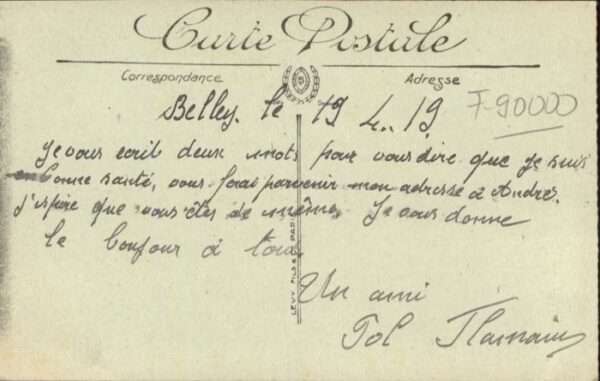 Carte Postale
Correspondance
Adresse
Belley. le 19 4..19.
F-90000
je vous ecrit deux mots pour vous dire que je suis
en bonne santé, vous ferai parvenir mon adresse à André.
j'espère que vous êtes de même. Je vous donne
le bonjour à tous.
LEVY FILS &
Un ami
Pol